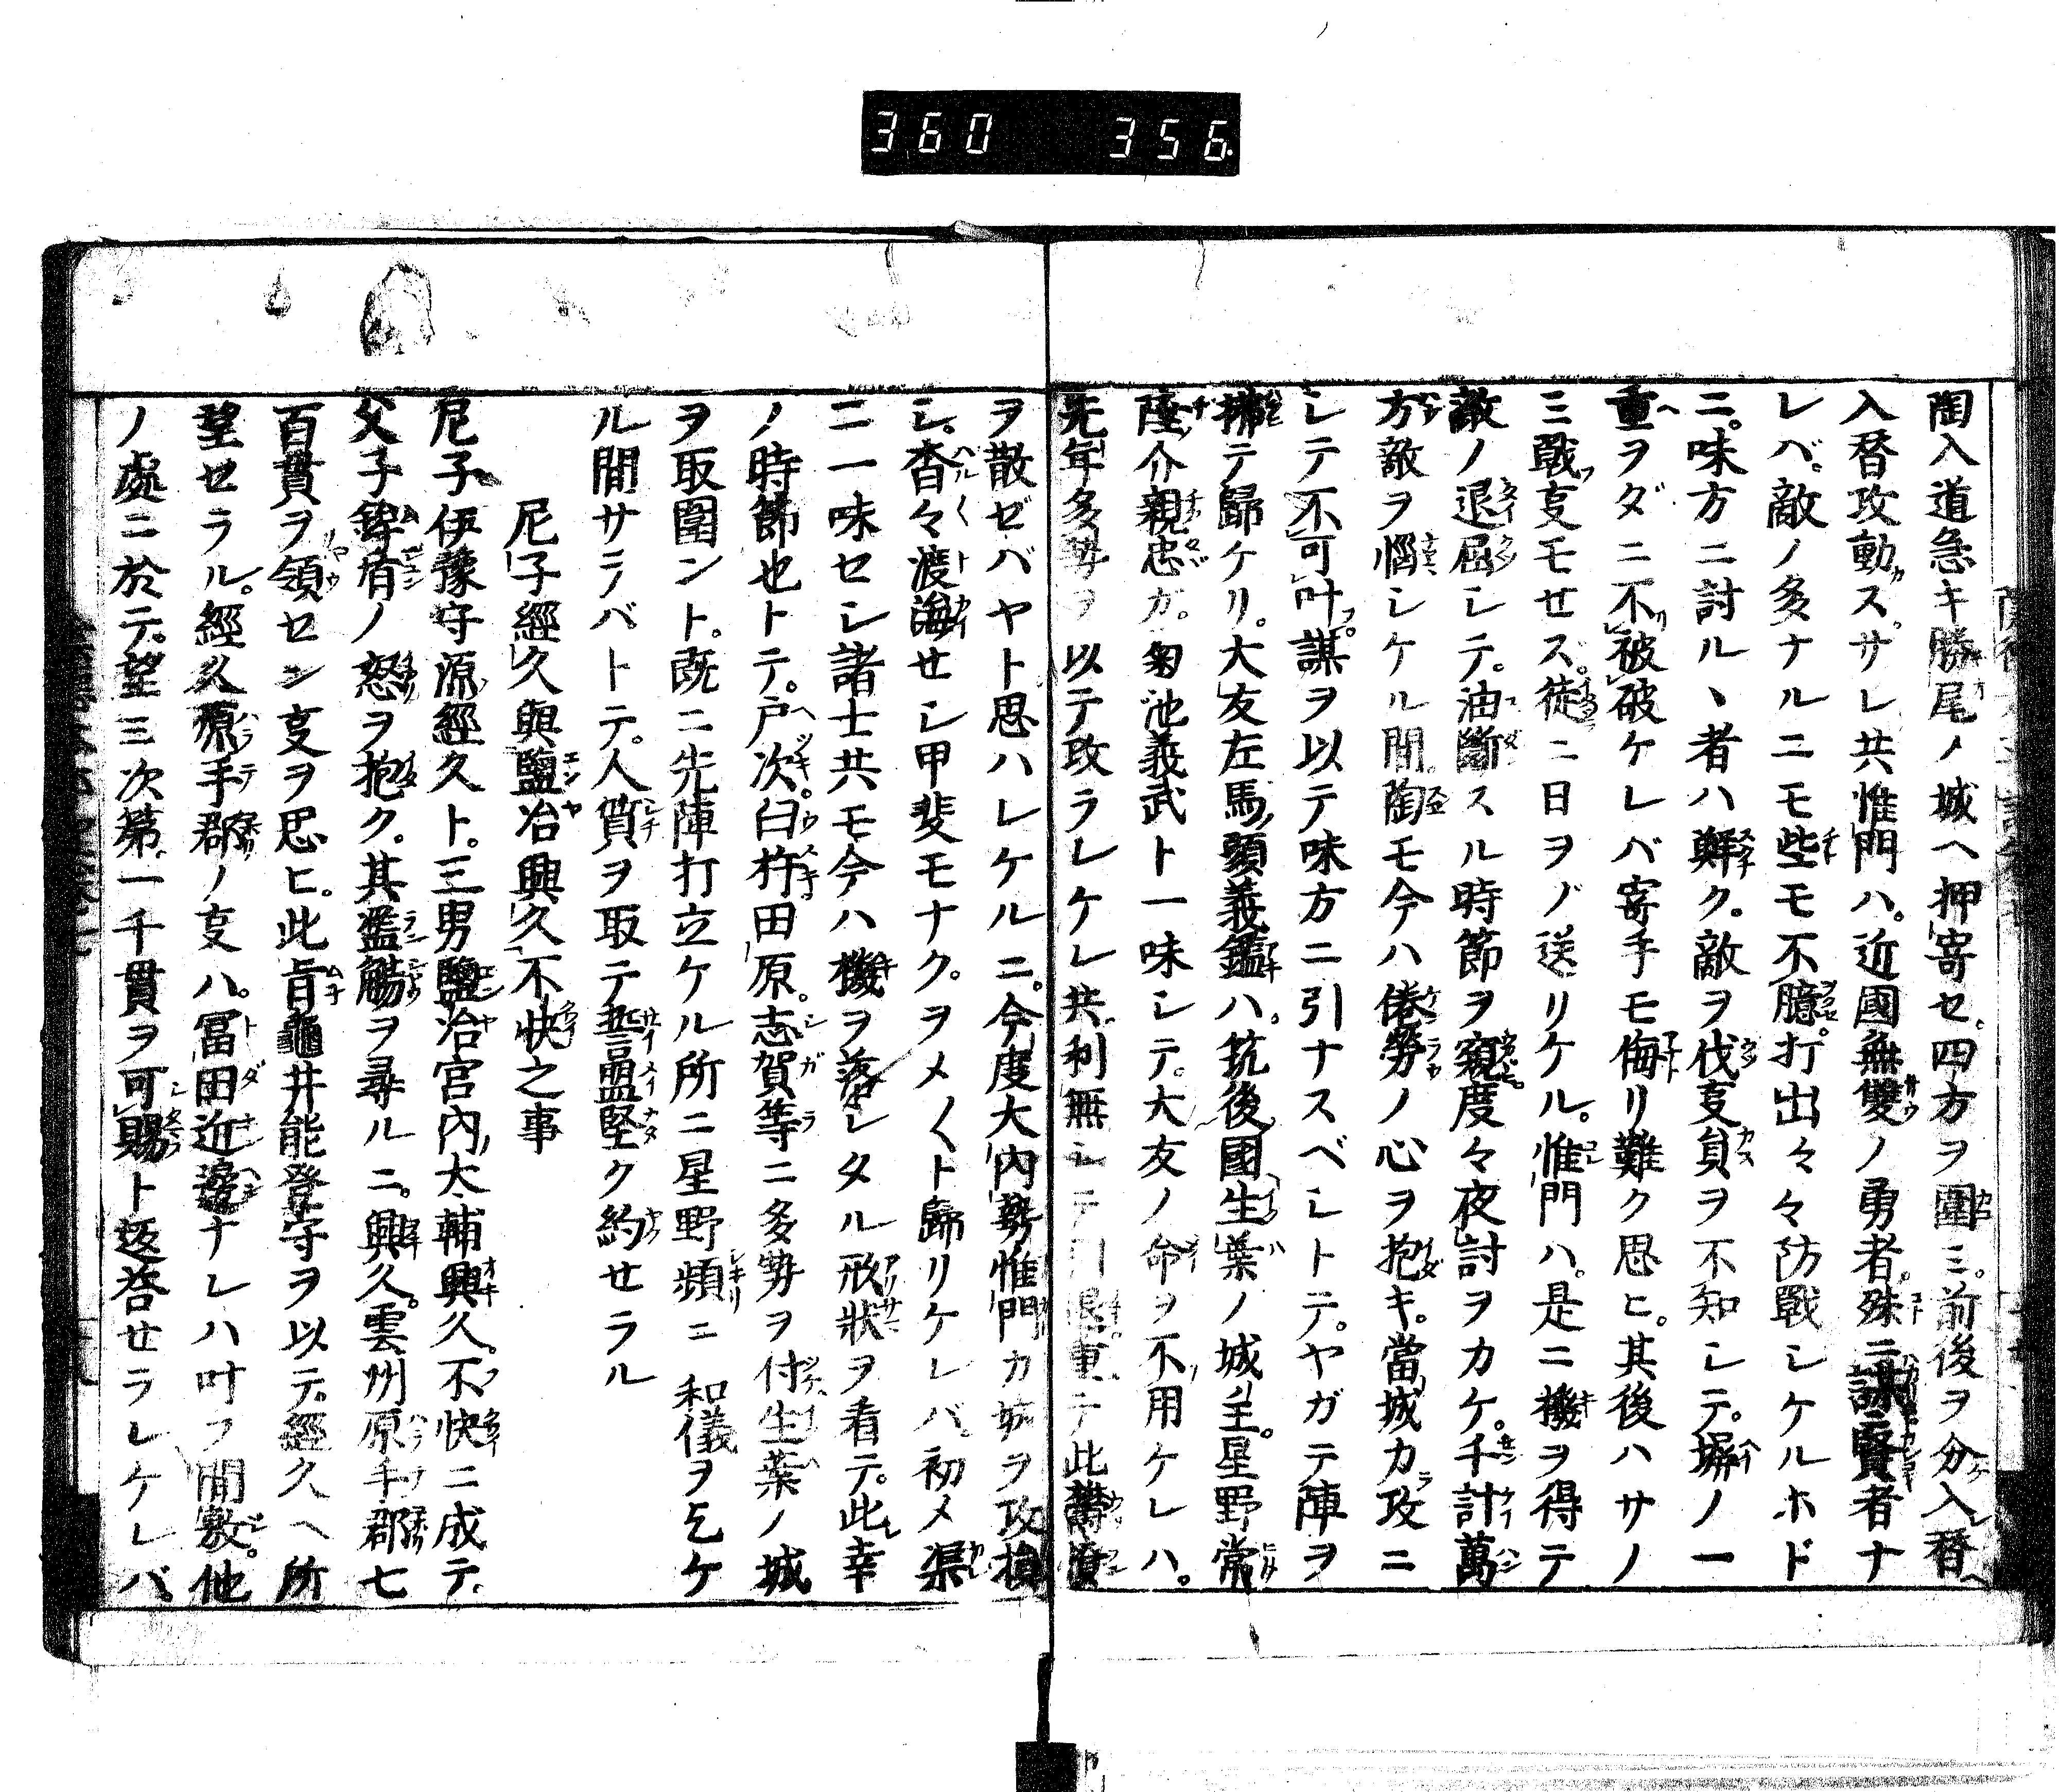 360 356
陶入道急キ勝尾ノ城ヘ押寄セ。四方ヲ圍ミ。前後ヲ分入替
入替攻動ス。サレ共惟門ハ。近國無雙ノ勇者。殊ニ謀賢者ナ
レバ。敵ノ多ナルニモ些モ不臆。打出々々防戰シケルホド
ニ。味方ニ討ルヽ者ハ鮮ク。敵ヲ伐㕝負ヲ不知シテ。塀ノ一
重ヲダニ不被破ケレバ寄手モ侮リ難ク思ヒ。其後ハサノ
ミ戰㕝モせズ。徒ニ日ヲノ送リケル。惟門ハ。是ニ機ヲ得テ
敵ノ退屈シテ。油斷スル時節ヲ窺。度々夜討ヲカケ。千計萬
方敵ヲ惱シケル間。陶モ今ハ倦勞ノ心ヲ抱キ。當城力攻ニ
シテ不可叶。謀ヲ以テ味方ニ引ナスベシトテ。ヤガテ陣ヲ
拂テ歸ケリ。大友左馬頭義鑑ハ。筑後國生葉ノ城主。星野常
陸介親忠ガ。菊池義武ト一味シテ。大友ノ命ヲ不用ケレハ。
先年多勢ヲ以テ攻ラレケレ共。利無シテ引退。重テ此欝憤
ヲ散ゼバヤト思ハレケルニ。今度大内勢惟門カ城ヲ攻損
シ。杳々渡海せシ甲斐モナク。ヲメ〱ト歸リケレバ。初メ渠
ニ一味セシ諸士共モ今ハ機ヲ落シタル形狀ヲ看テ。此幸
ノ時節也トテ。戸次。臼杵。田原。志賀等ニ多勢ヲ付。生葉ノ城
ヲ取圍ント。既ニ先陣打立ケル所ニ星野頻ニ和儀ヲ乞ケ
ル間サラバトテ。人質ヲ取テ誓盟堅ク約せラル
尼子經久與鹽冶興久不快之事
尼子伊豫守源經久ト。三男鹽冶宮内大輔興久。不快ニ成テ。
父子鉾盾ノ怒ヲ抱ク。其濫觴ヲ尋ルニ。興久。雲州原手郡七
百貫ヲ領セン㕝ヲ思ヒ。此旨龜井能登守ヲ以テ。經久ヘ所
望セラル。經久原手郡ノ㕝ハ。冨田近邊ナレハ叶フ間敷。他
ノ處ニ於テ。望ミ次第。一千貫ヲ可賜ト返答せラレケレバ。